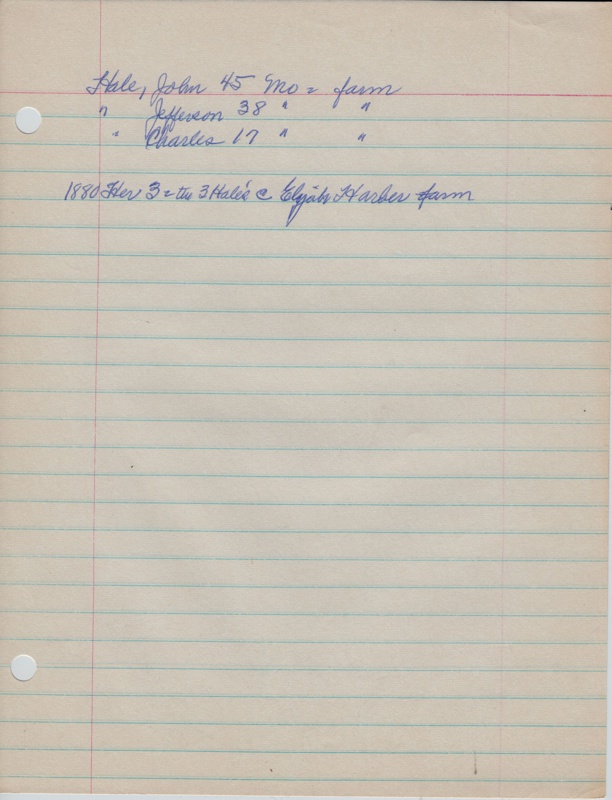 Hale, John 45 Mo = farm
" Jefferson 38 " "
" Charles 17 " "
1880 Her 3 = the 3 Hale's @ Elijah Harber farm